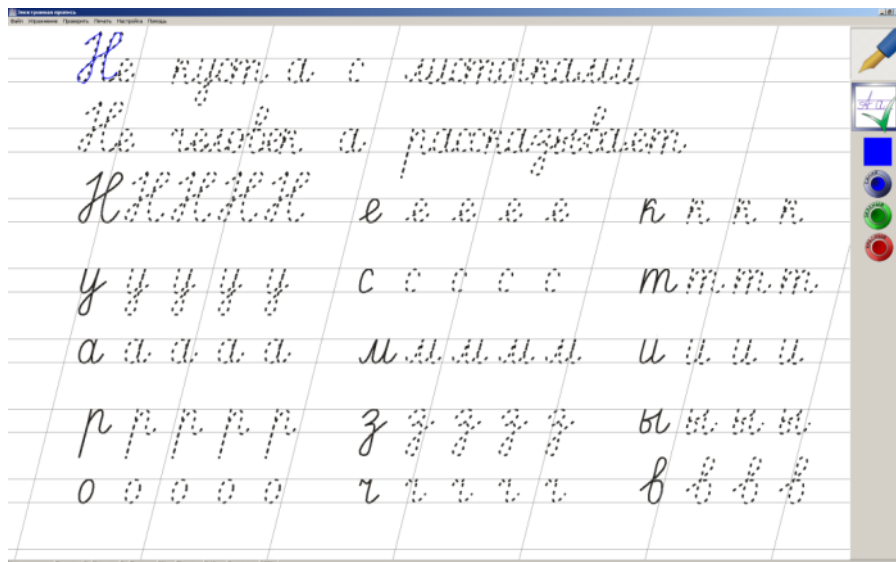 Электронная пропись
Файл Упражнение Проверить Печать Настройка Помощь
Не куст а с листочками
Не человек а рассказывает
Н Н Н Н Н е е е е е к к к к
у у у у у с с с с с т т т т
а а а а а м м м м м и и и и
р р р р р з з з з з ы ы ы ы
о о о о о ч ч ч ч ч в в в в